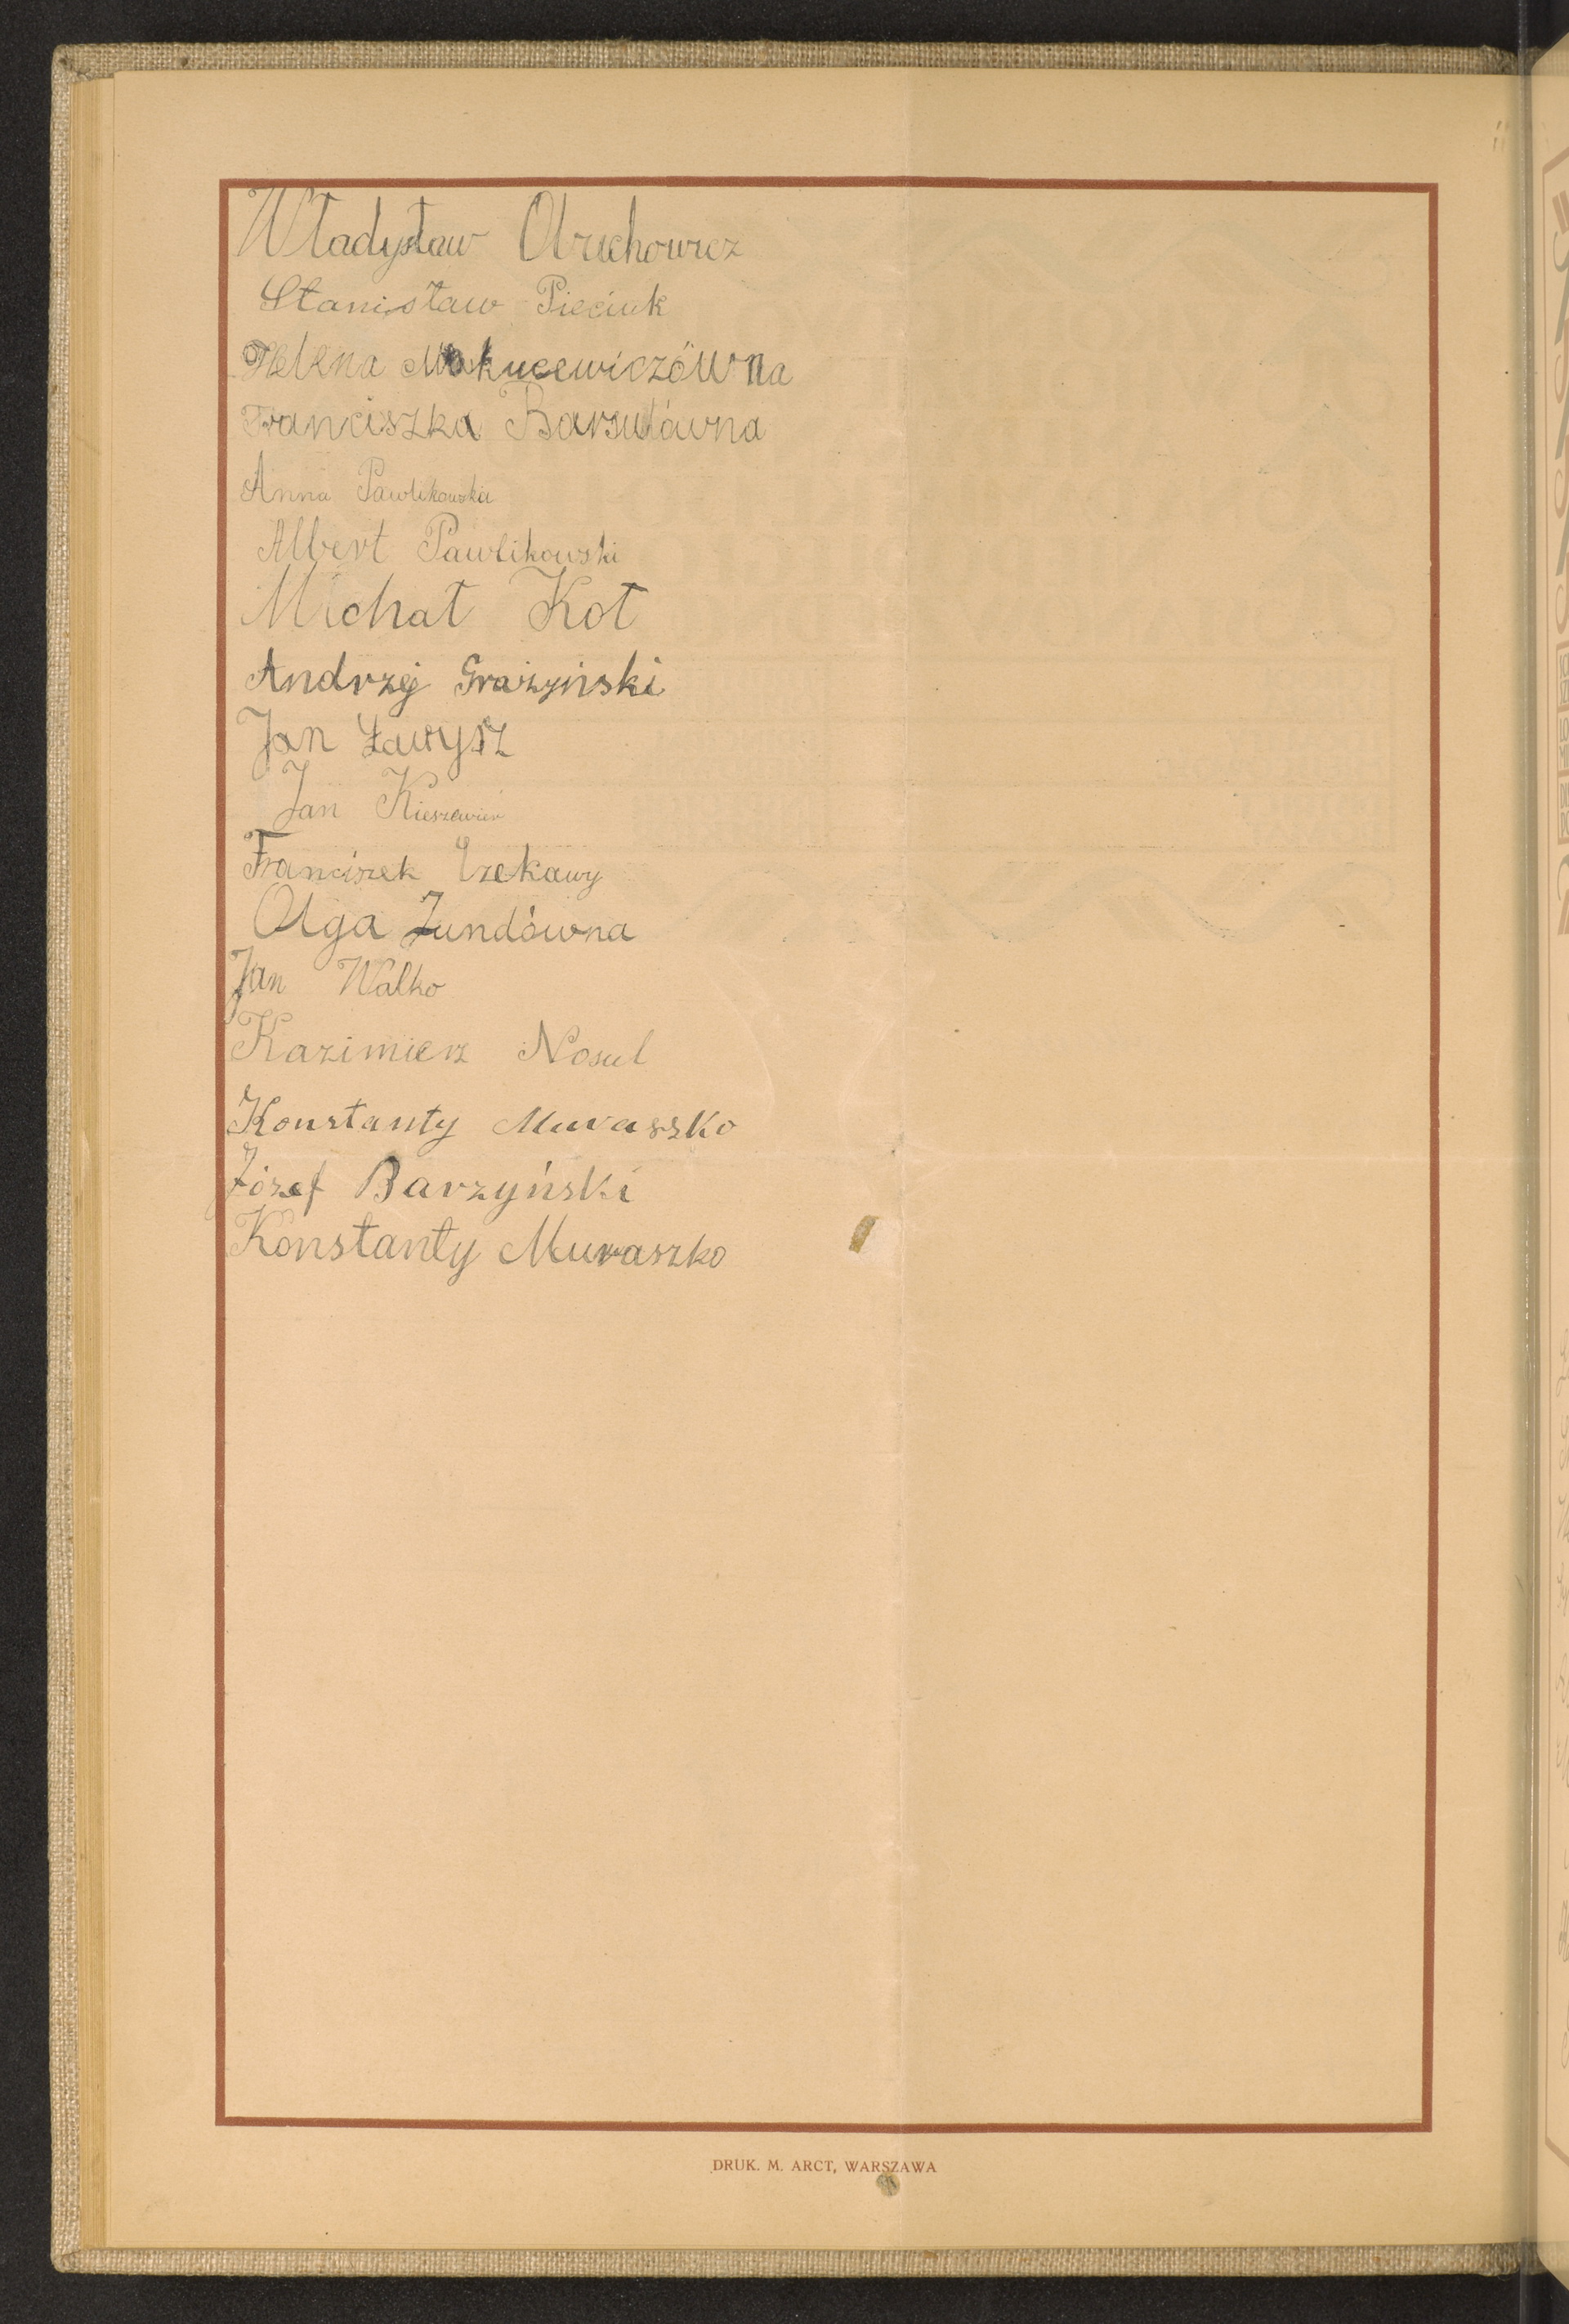 Władysław Obuchowicz
Stanisław Pieciuk
Helena Makucewiczówna
Franciszka Barsułówna
Anna Pawlikowska
Albert Pawlikowski
Michał Kot
Andrzej Grażyński
Jan Ławysz
Jan
Franciszek
Olga Zundówna
Jan Walko
Kazimierz Nosul
Konstanty Muraszko
Józef Barzyński
Konstanty Muraszko
DRUK. M. ARCT, WARSZAWA